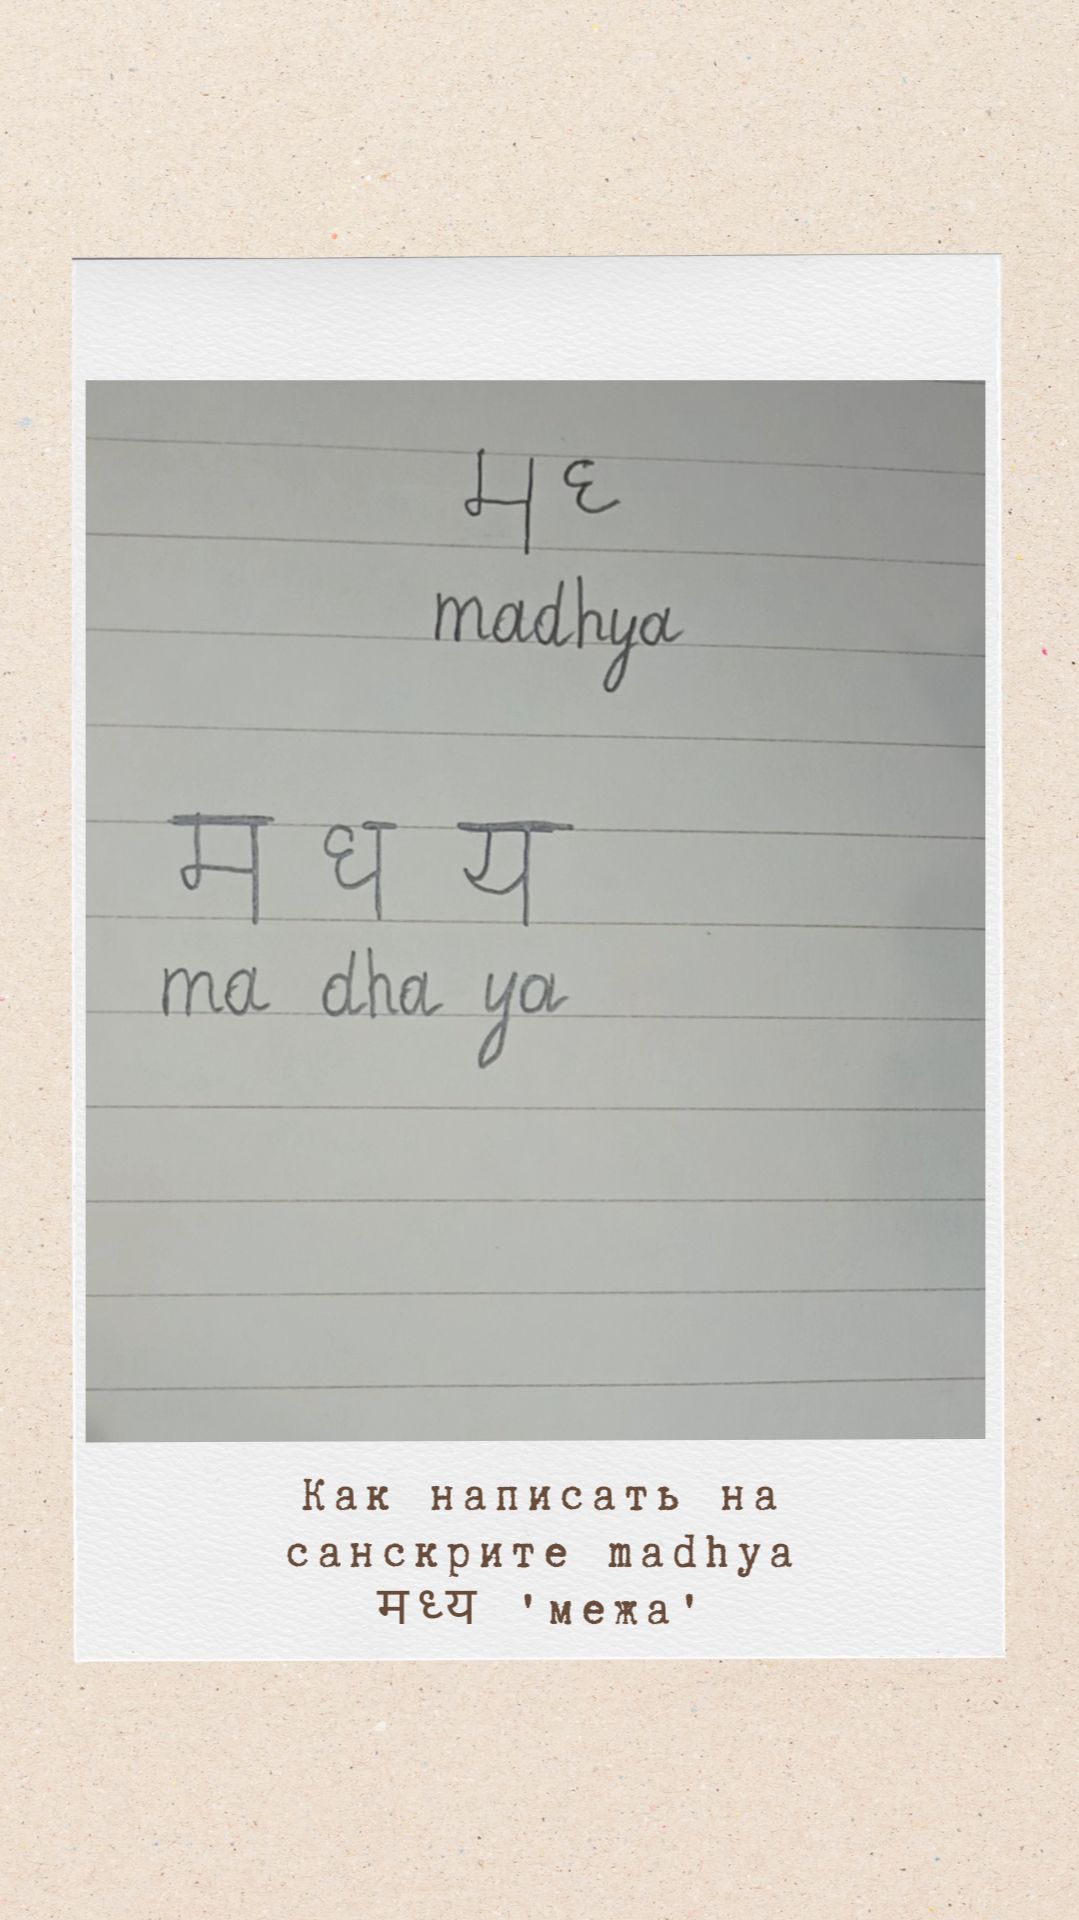 म ध
madhya
म ध य
ma dha ya
Как написать на
санскрите madhya
मध्य 'межа'